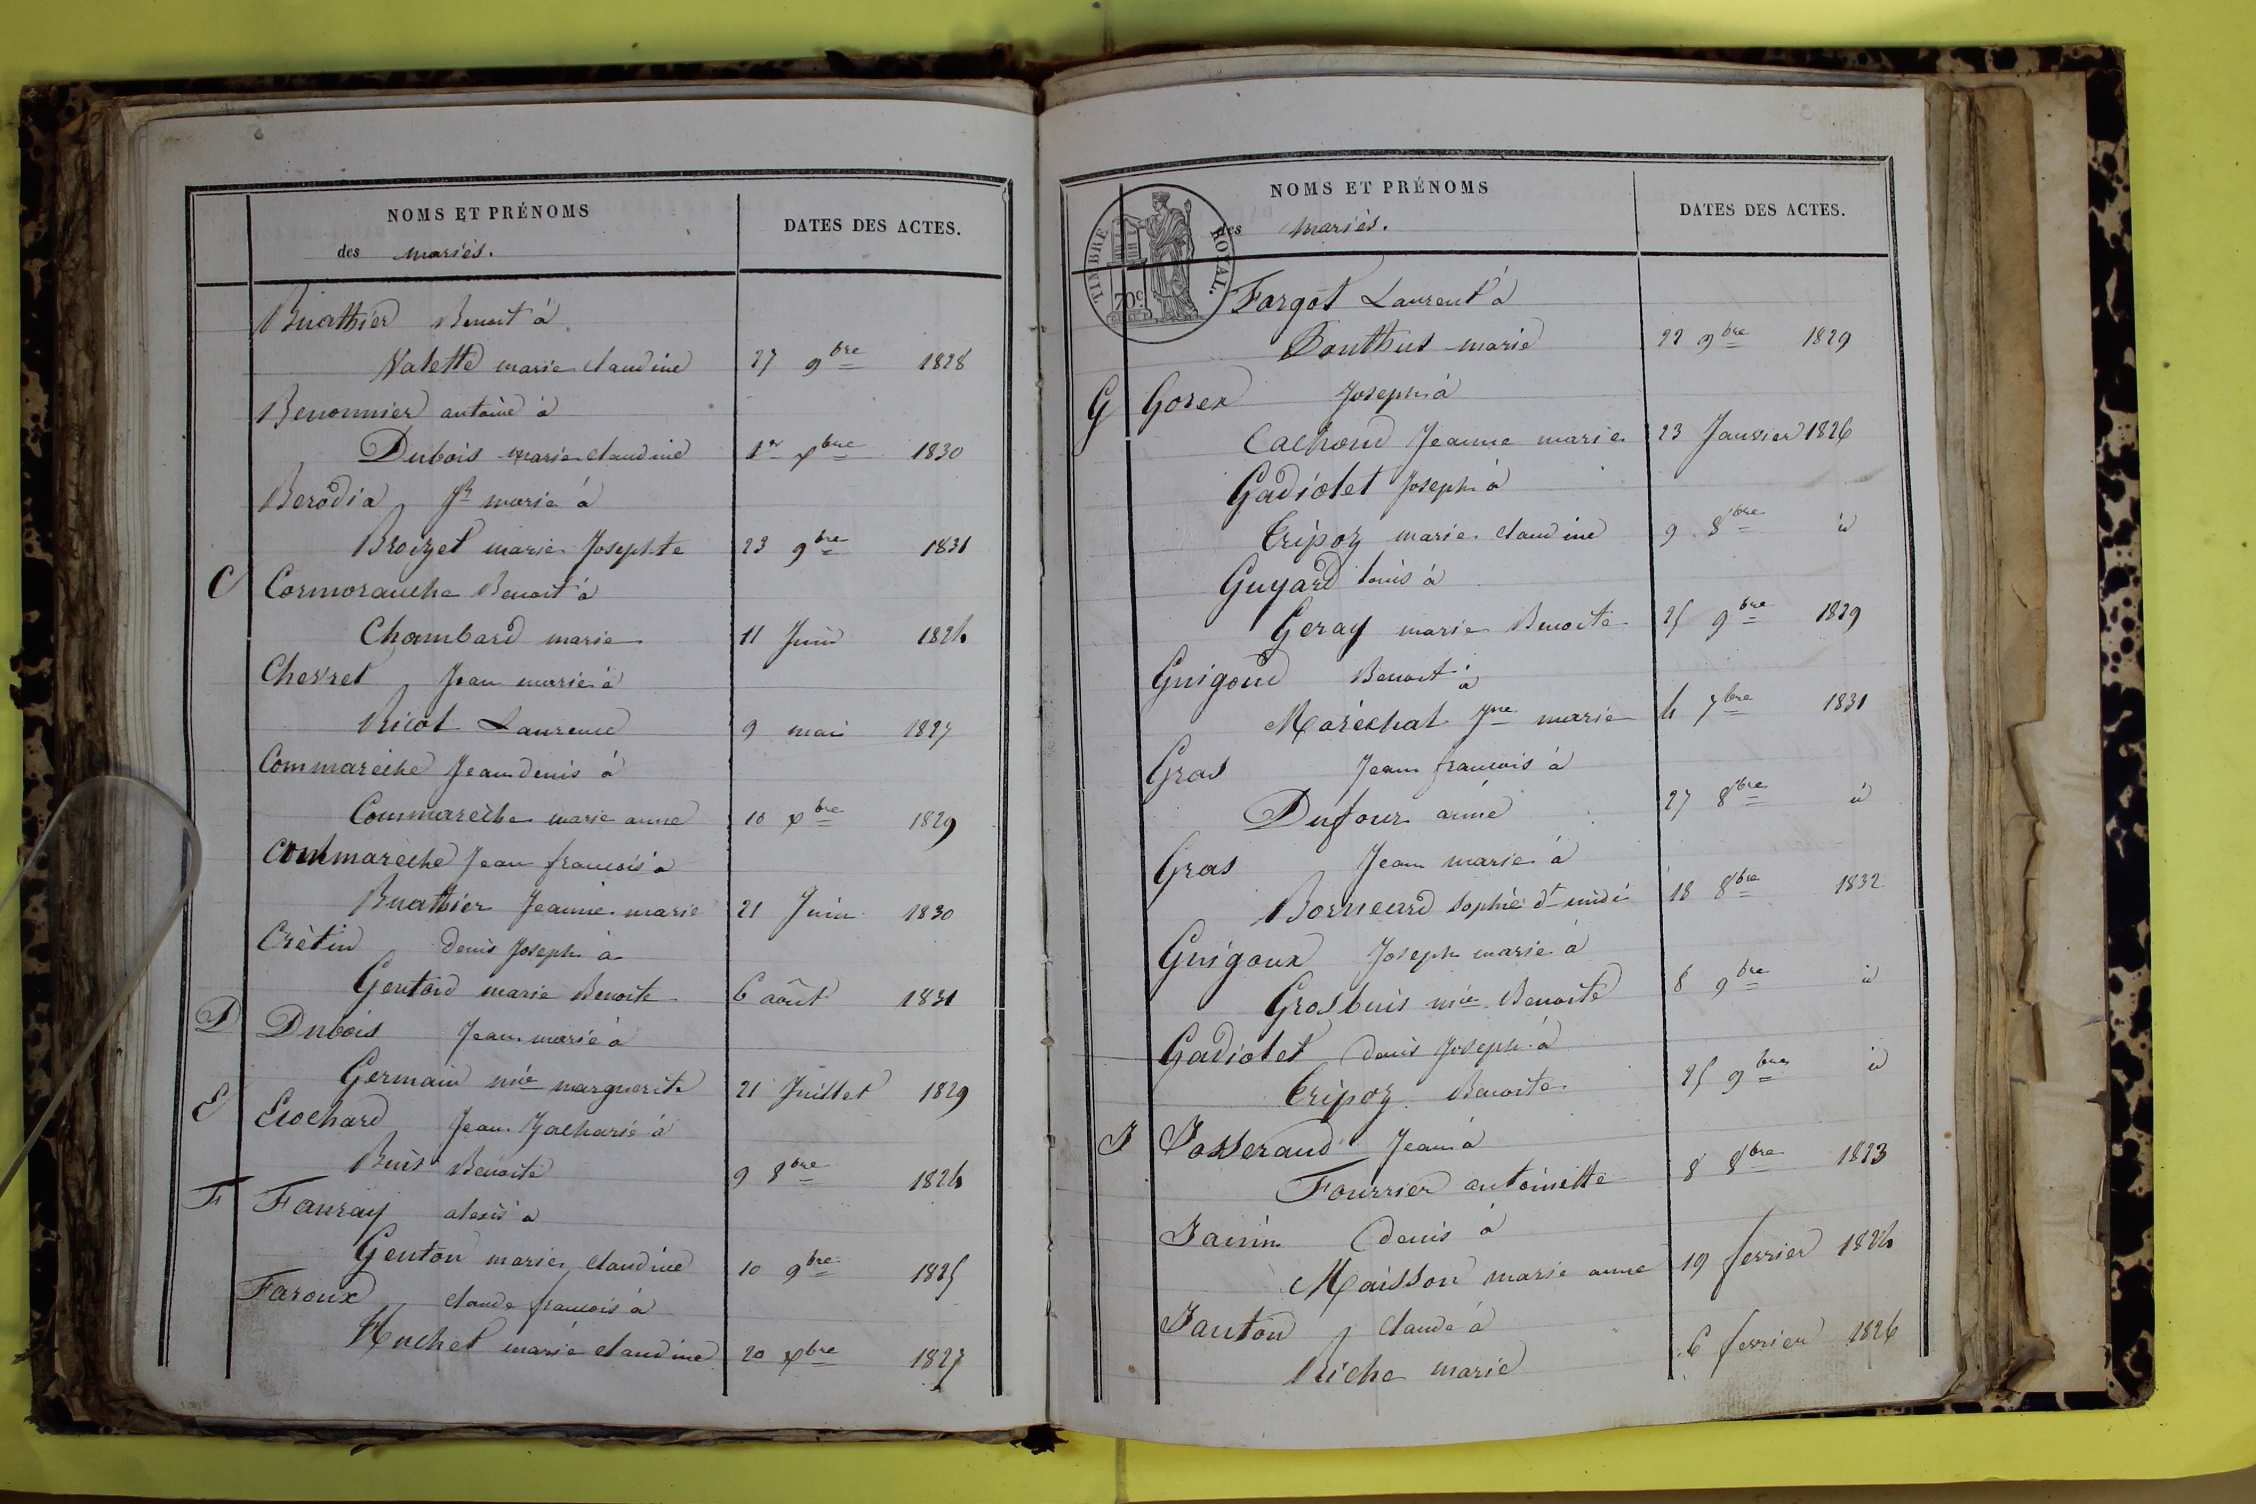 NOMS ET PRÉNOMS
des mariés.
DATES DES ACTES.
Buathier Benoit à
Valette marie claudine 27 9bre 1828
Benonnier antoine à
Dubois marie claudine 1er xbre 1830
Berodia Jh marie à
Broizet marie Josephte 23 9bre 1831
C Cormoranche Benoit à
Chambard marie 11 Juin 1824
Chevret Jean marie à
Ricol Laurence 9 mai 1827
Commarèche Jean denis à
Commarèche marie anne 10 xbre 1829
Commarèche Jean francois à
Buathier Jeanne marie 21 Juin 1830
Crètin denis Joseph à
Genton marie Benoite 6 août 1831
D Dubois Jean marie à
Germain mie marguerite 21 Juillet 1829
E Eiochard Jean Zacharie à
Buis Benoite 9 8bre 1824
F Fauray alexis à
Genton marie claudine 10 9bre 1825
Faroux claude francois à
Huchet marie claudine 20 xbre 1827
NOMS ET PRÉNOMS
des mariés.
DATES DES ACTES.
TIMBRE ROYAL.
70c.
Fargot Laurent à
Ponthus marie 22 9bre 1829
G Gorex Joseph à
Cachoud Jeanne marie 23 Janvier 1826
Gadiolet Joseph à
Tripoz marie claudine 9 8bre id
Guyard louis à
Geray marie Benoite 25 9bre 1829
Guigoud Benoit à
Maréchal Jne marie 4 7bre 1831
Gras Jean francois à
Dufour aimé 27 8bre id
Gras Jean marie à
Borneard sophie dt 18 8bre 1832
Guigoux Joseph marie à
Grosbuis mie Benoite 8 9bre id
Gadiolet denis Joseph à
Tripoz Benoite 25 9bre id
J Josserand Jean à
Fourrier antoinette 8 8bre 1823
Janin denis à
Maisson marie anne 19 fevrier 1824
Janton claude à
Riche marie 6 fevrier 1826